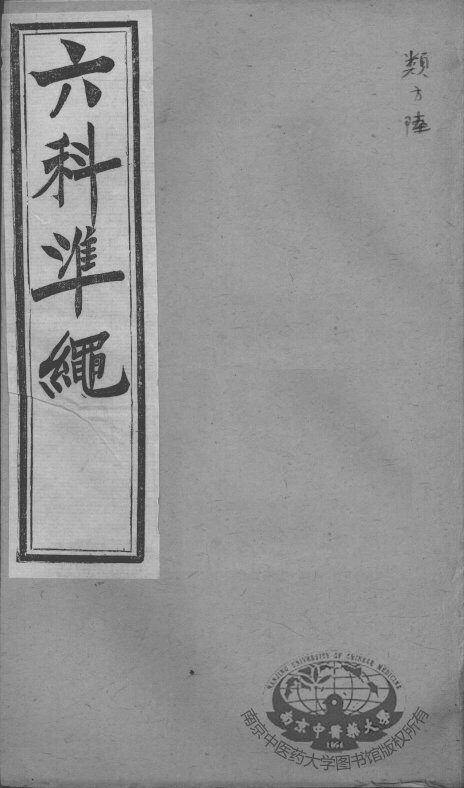 六科準繩
類方陸
NANJING UNIVERSITY OF CHINESE MEDICINE
南京中醫藥大學
1954
南京中医药大学图书馆版权所有